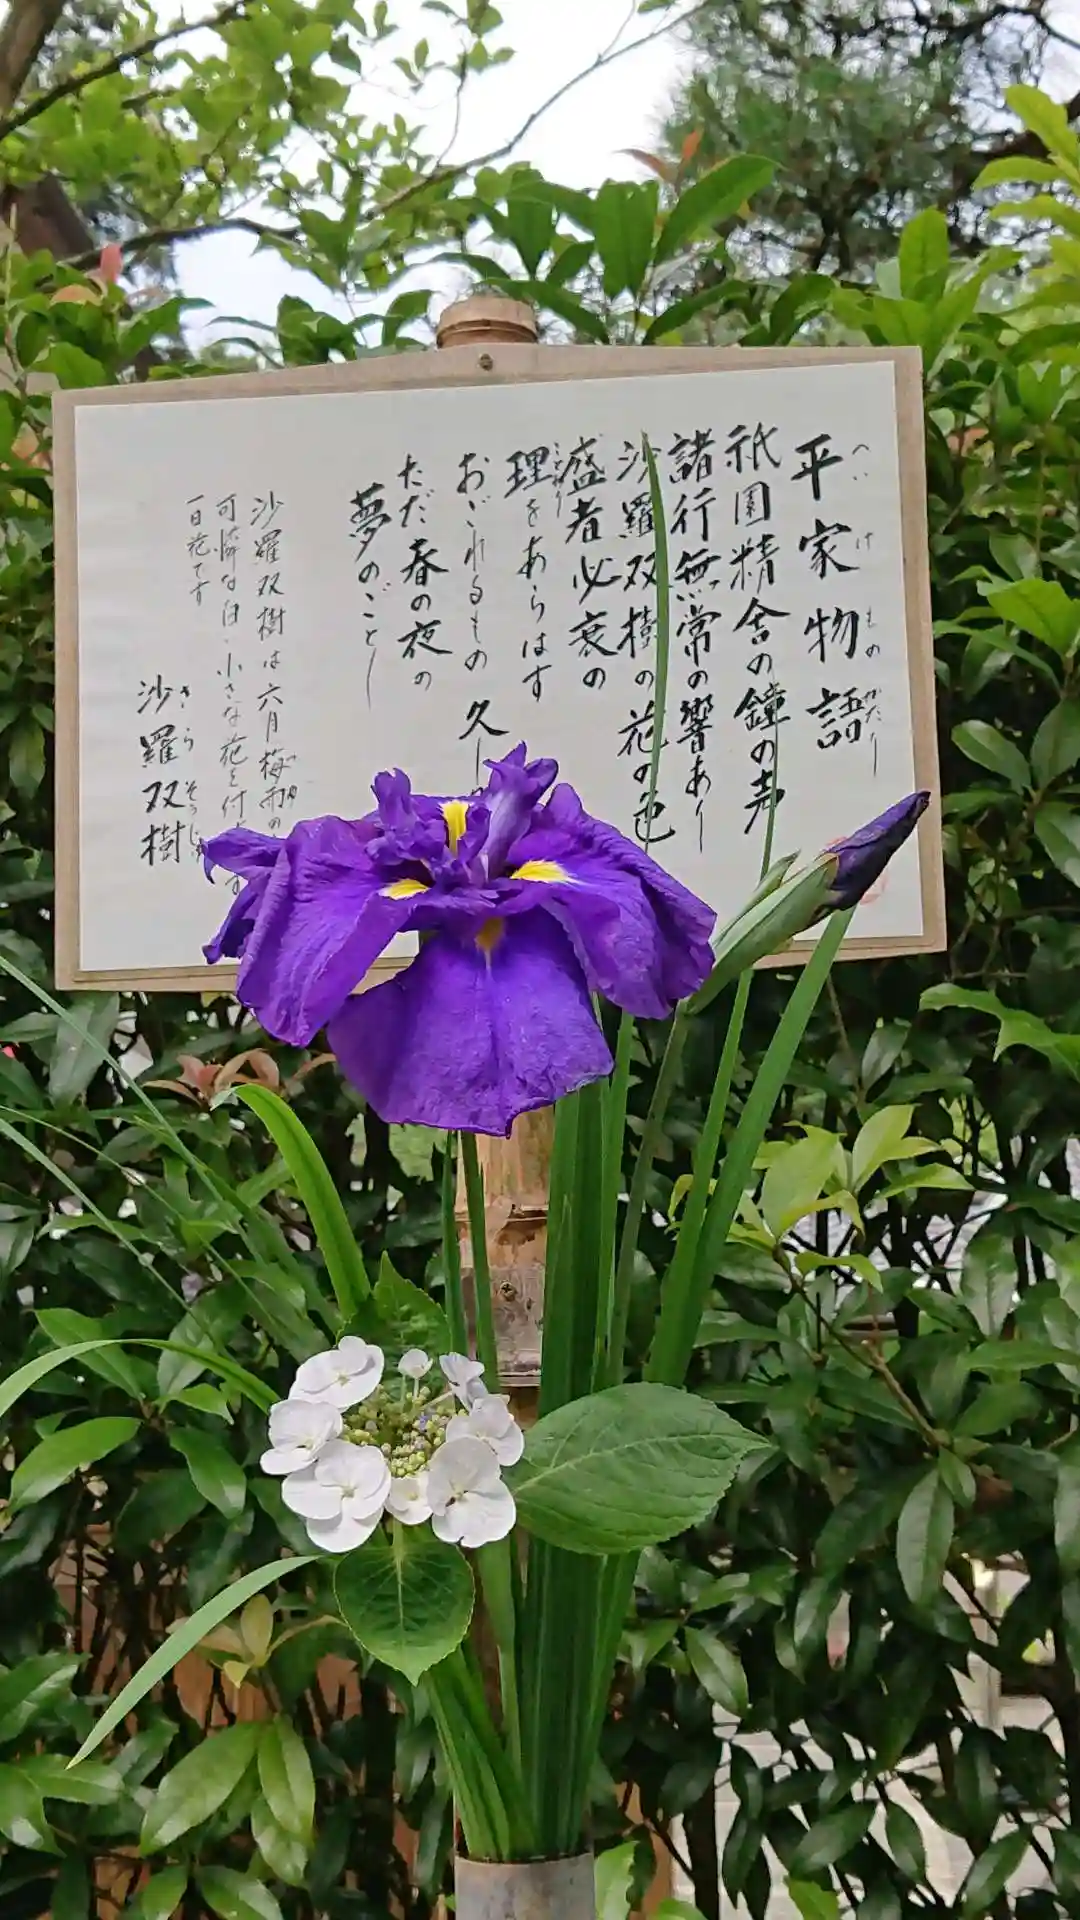 平家物語
へいけものがたり
祇園精舎の鐘の声
諸行無常の響あり
沙羅双樹の花の色
盛者必衰の
理をあらはす
ことわり
おごれるもの 久し
ただ春の夜の
夢のごとし
沙羅双樹は六月梅雨の
可憐な白い小さな花を付
す
一日花です
沙羅双樹
さらそうじゅ